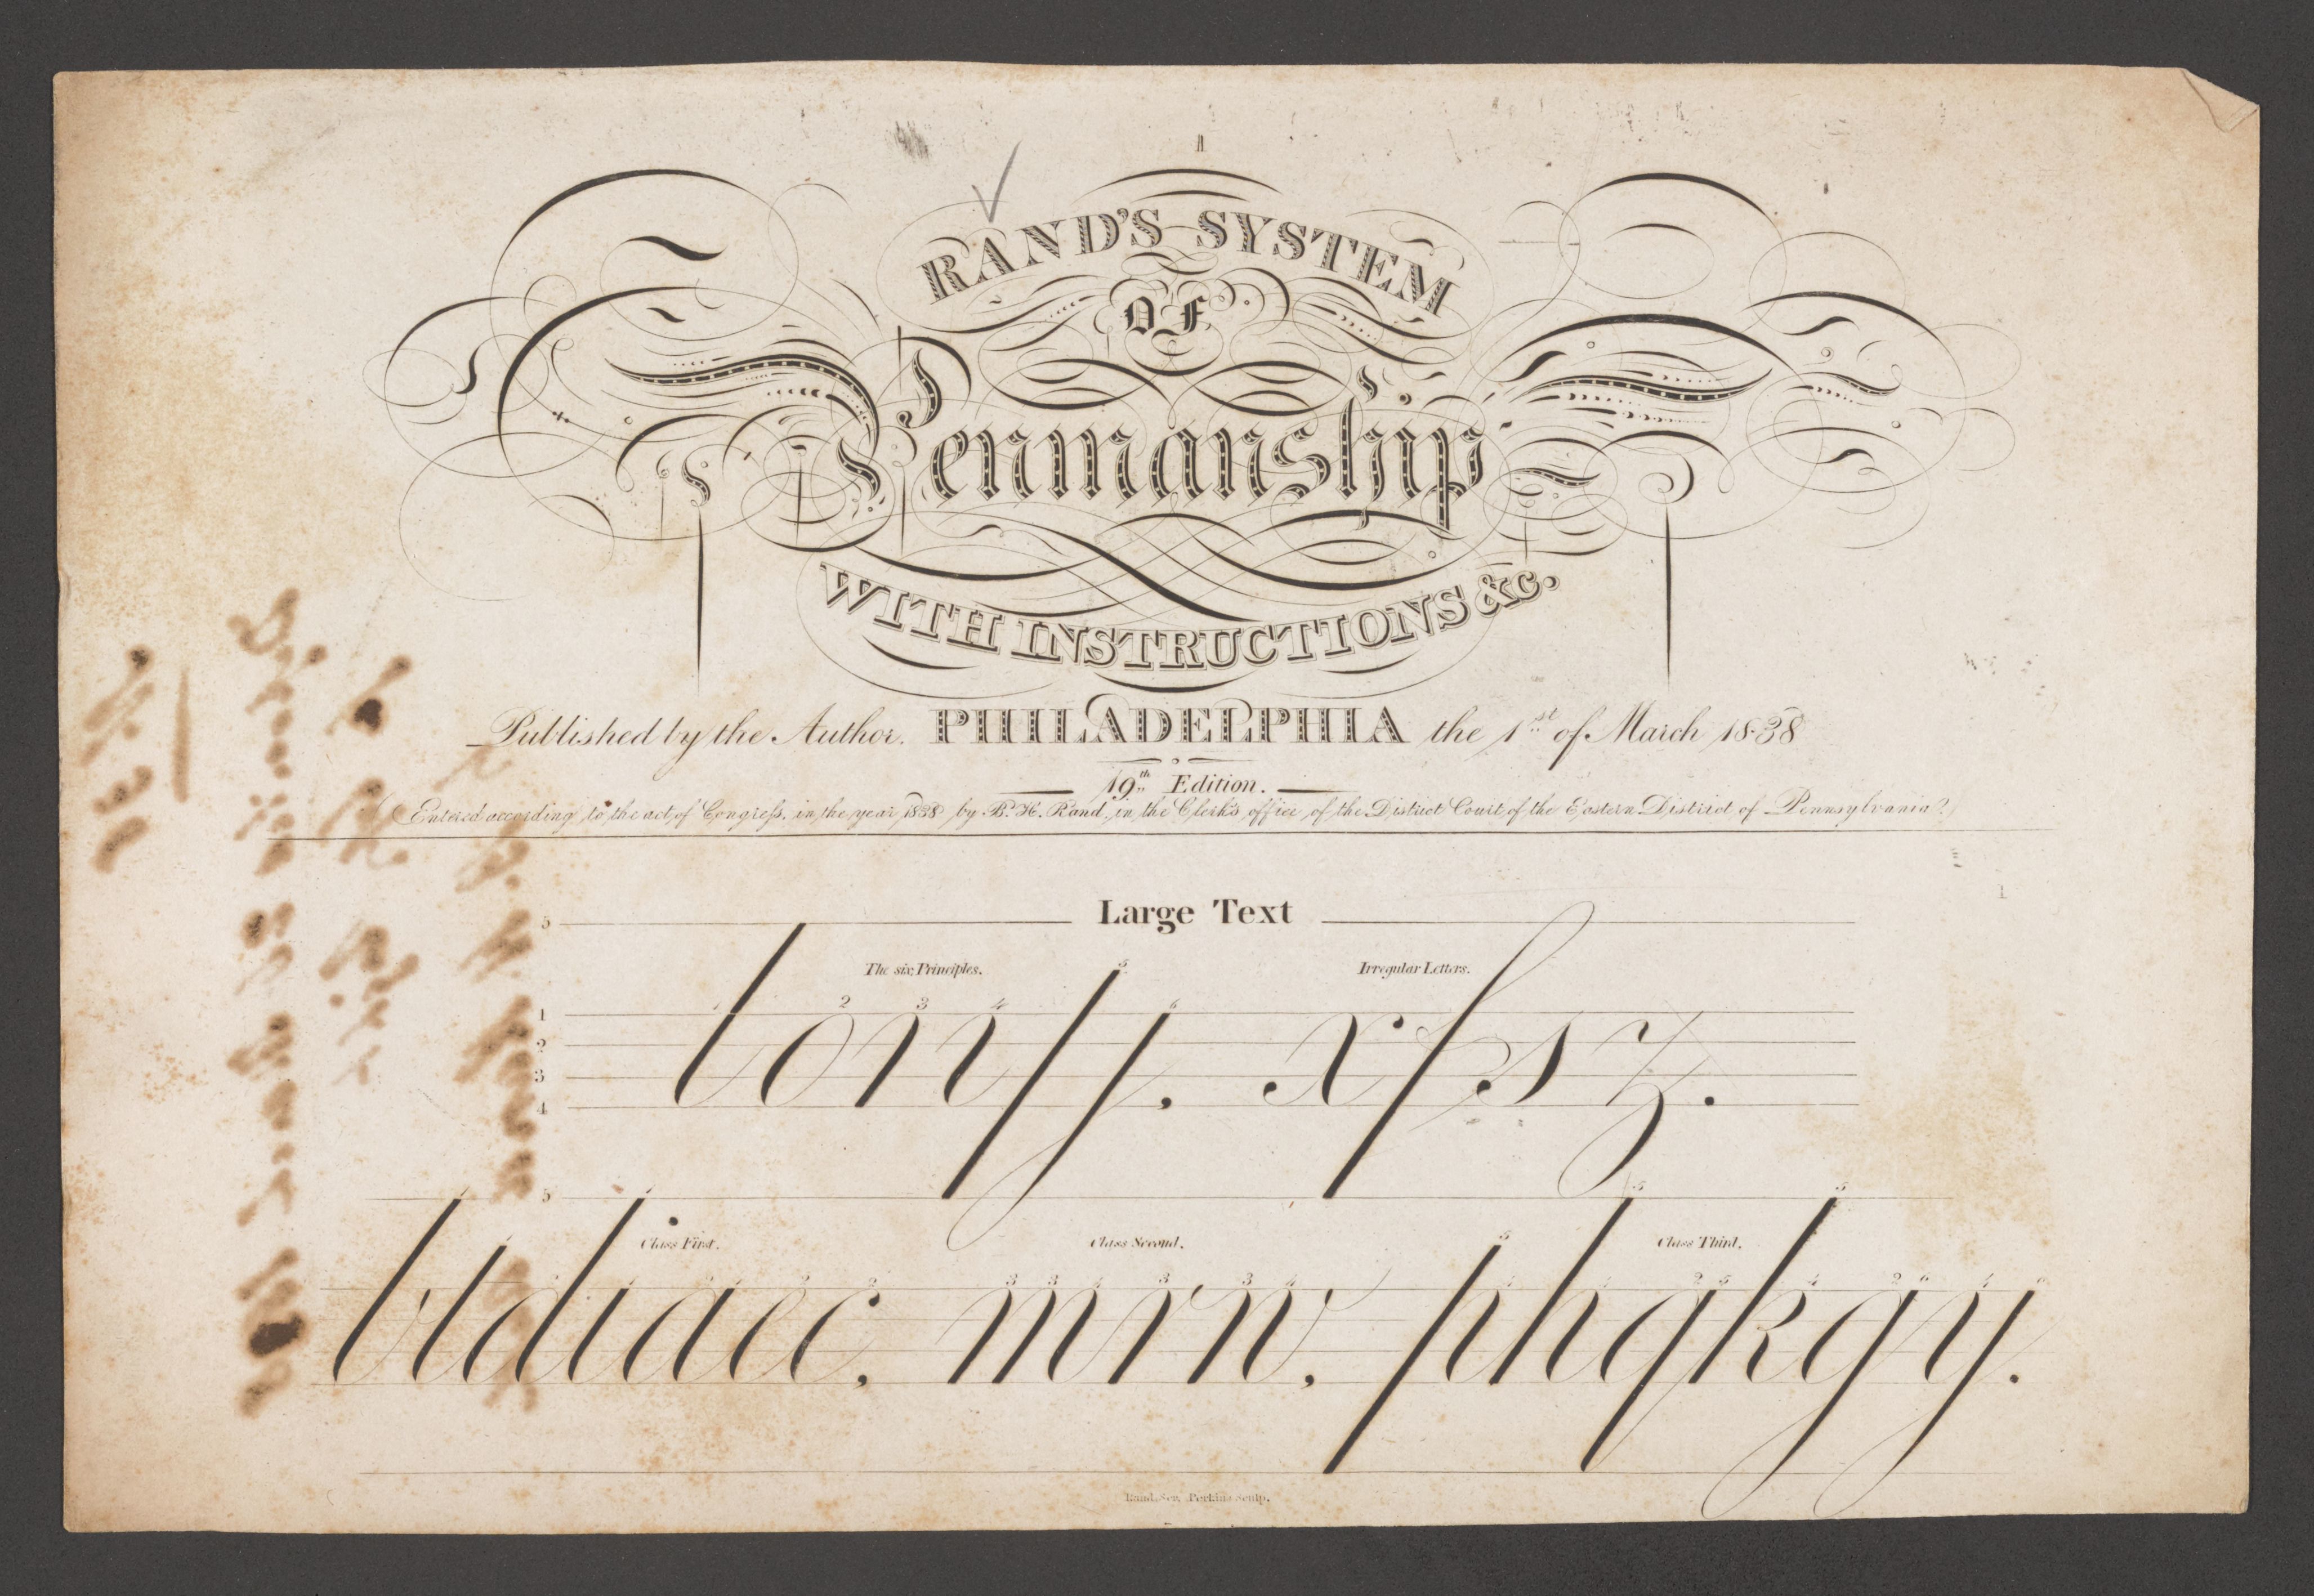 RAND'S SYSTEM
OF
Penmanship
WITH INSTRUCTIONS &c.
Published by the Author. PHILADELPHIA the 1st of March 1838
19th Edition.
Entered according to the act of Congress, in the year 1838 by B. H. Rand, in the Clerk's office of the District Court of the Eastern District of Pennsylvania
5 Large Text
The six Principles. Irregular Letters.
2 3 4 5 6
1
2
3
4
5
x f s z.
Class First. Class Second. Class Third.
b t d i a e c, m r n, p h q k g y.
Rand, Scr. Perkins sculp.